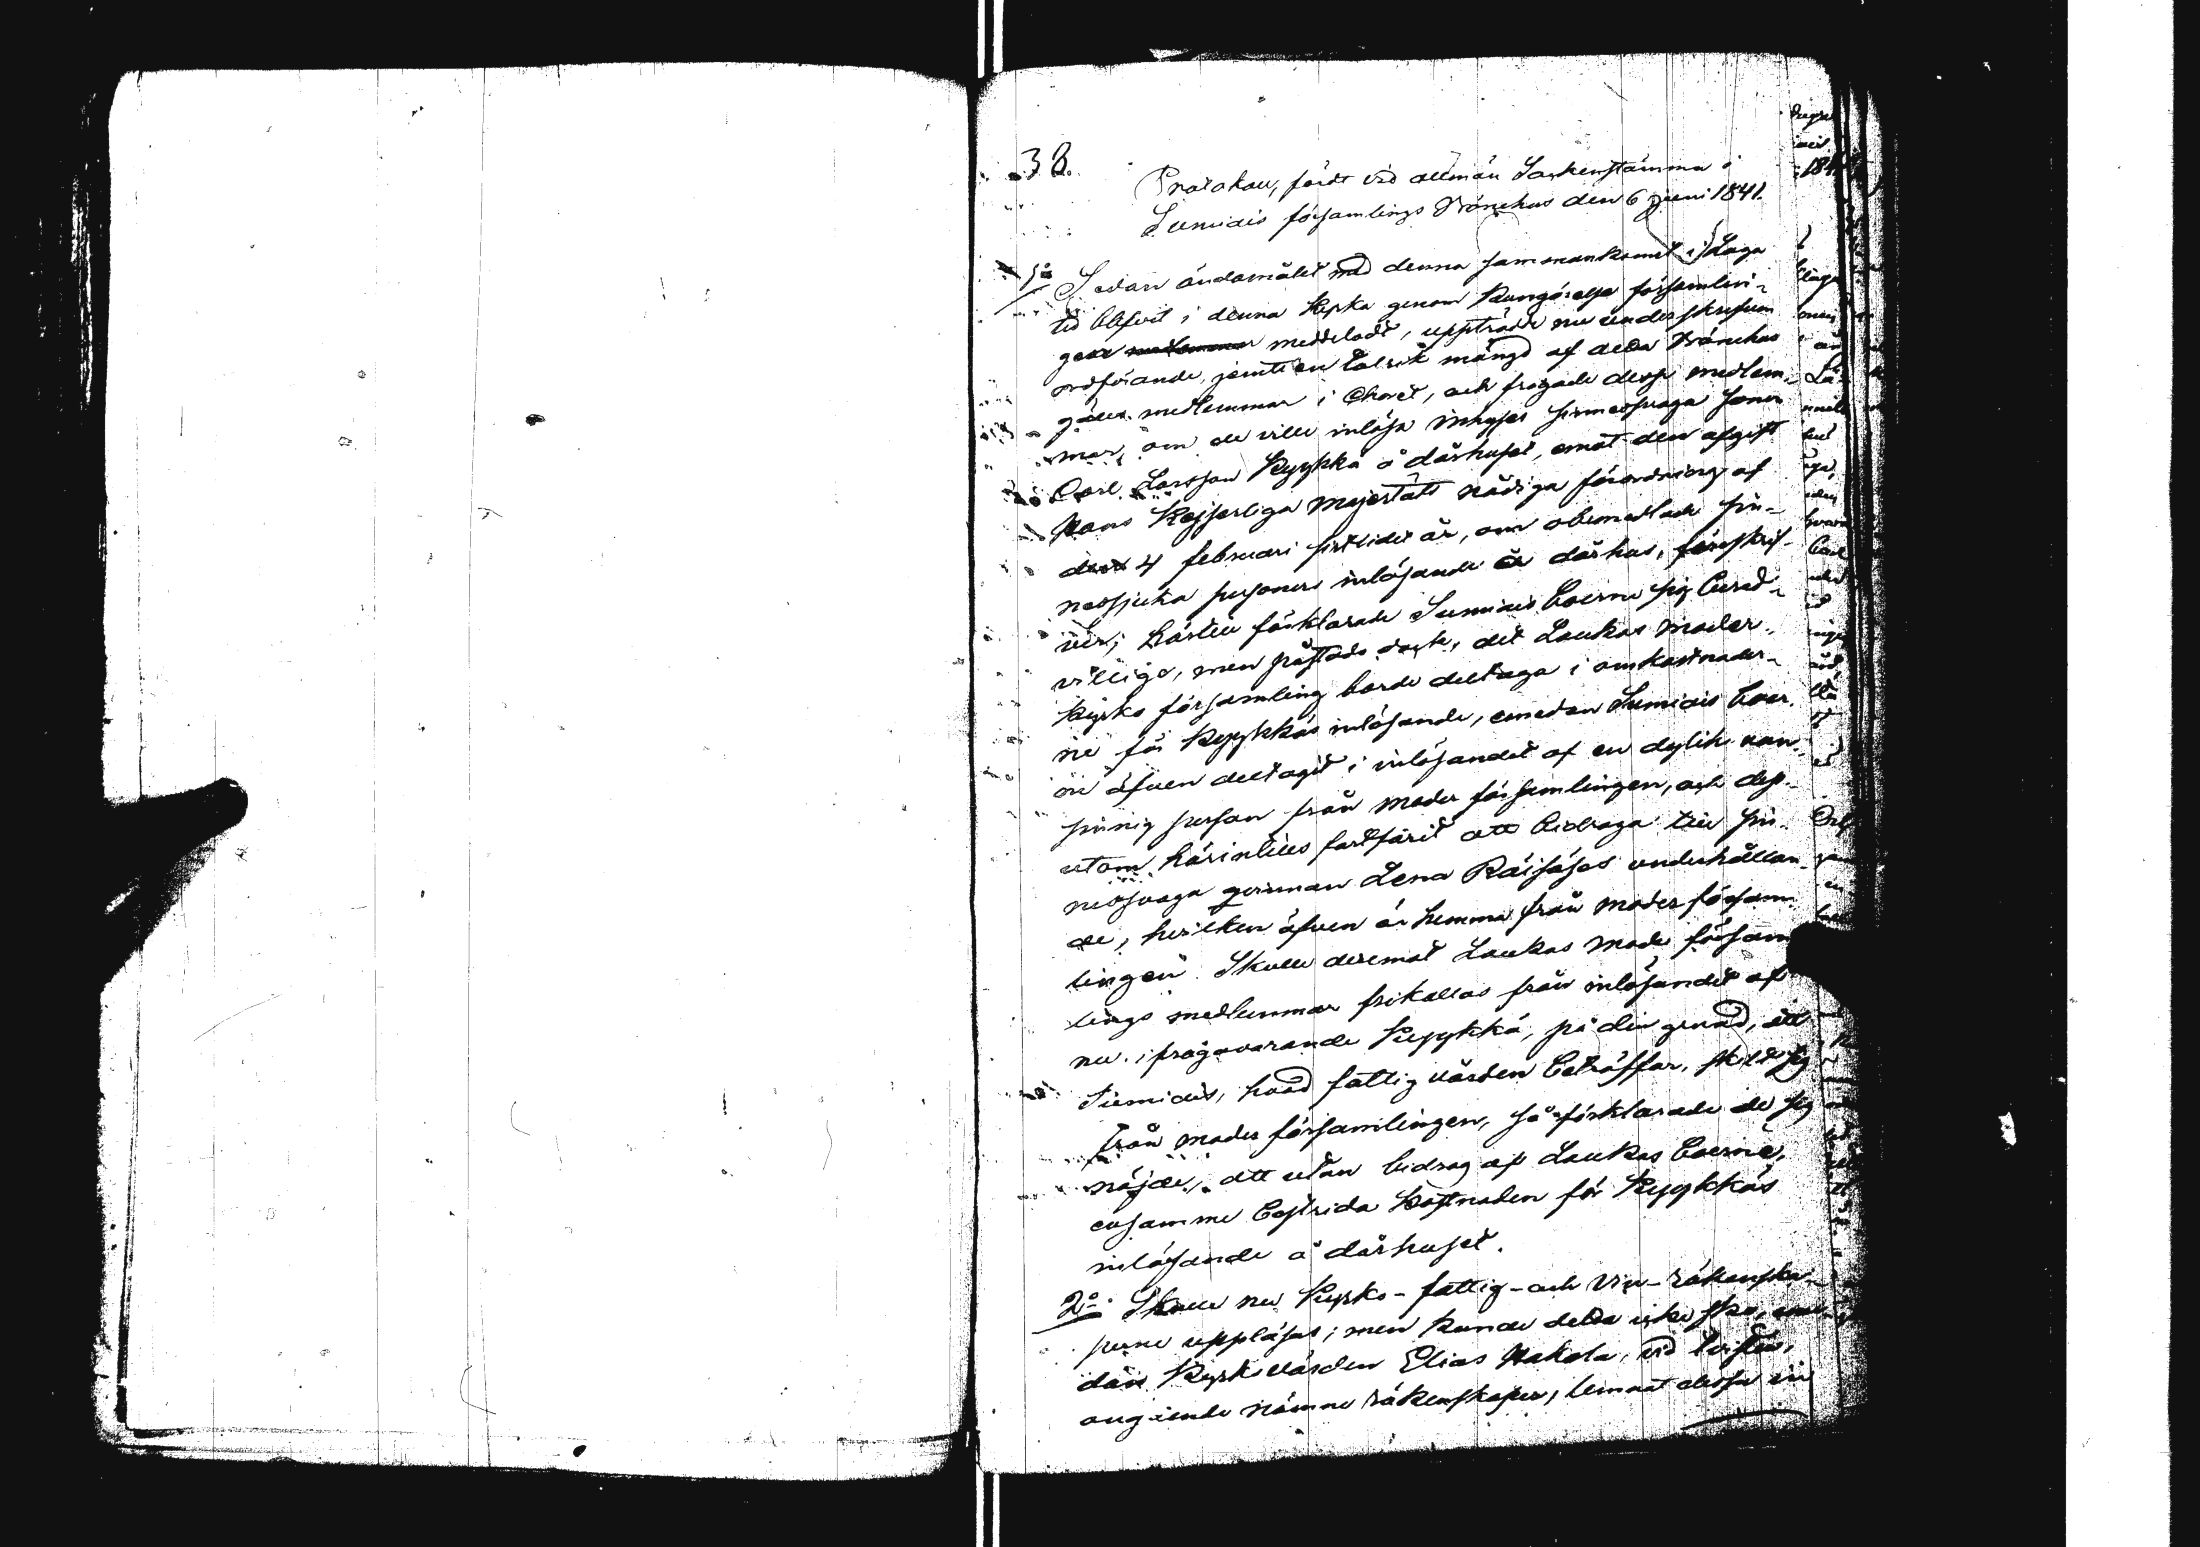 38.
Protokoll, fördt vid allmän Sockenstämma i
Sumiais församlings Bönehus den 6 juni 1841.
1o Sedan ändamålet med denna sammankomst i Laga
tid blifvit i denna kyrka genom kungörelse församlin-
gens meddeladt, uppträdde nu underskrefven
ordförande, jemte en talrik mängd af detta Bönehus
medlemmar i Choret, och frågade dess medlem-
mar, om de ville inlösa inhyses sinnessvaga sonen
Carl Larsson Kyykkä å dårhuset, emot den afgift
Hans Kejserliga Majestäts nådiga förordning af
den 4 februari sistlidet år, om obemedlade sin-
nessjuka personers inlösande å dårhus, föreskrif-
ver; härtill förklarade Sumiais boerne sig bered-
villige, men påstodo dock, det Laukas moder-
kyrko församling borde deltaga i omkostnader-
ne för Kyykkäs inlösande, emedan Sumiais boer-
ne äfven deltagit i inlösandet af en dylik van-
sinnig person från moder församlingen, och dess-
utom härintills fortfarit att bidraga till sin-
nessvaga qvinnan Lena Räisäses underhållan-
de, hvilken äfven är hemma från moder församm-
lingen. Skulle deremot Laukas moder församm
lings medlemmar frikallas från inlösandet af
nu i frågavarande Kyykkä, på den grund, att
Sumiais, hvad fattigvården beträffar, skilt sig
från moder församlingen, så förklarade de sig
nöjde, att utan bidrag af Laukas boerne,
ensamme bestrida kostnaden för Kyykkäs
inlösande å dårhuset.
2o Skulle nu Kyrko- fattig- och Vin- räkenska-
perne uppläsas; men kunde detta icke ske, eme-
dan Kyrkovärden Elias Hakola, vid tvisten,
angående nämnde räkenskaper, lemnat dessa in